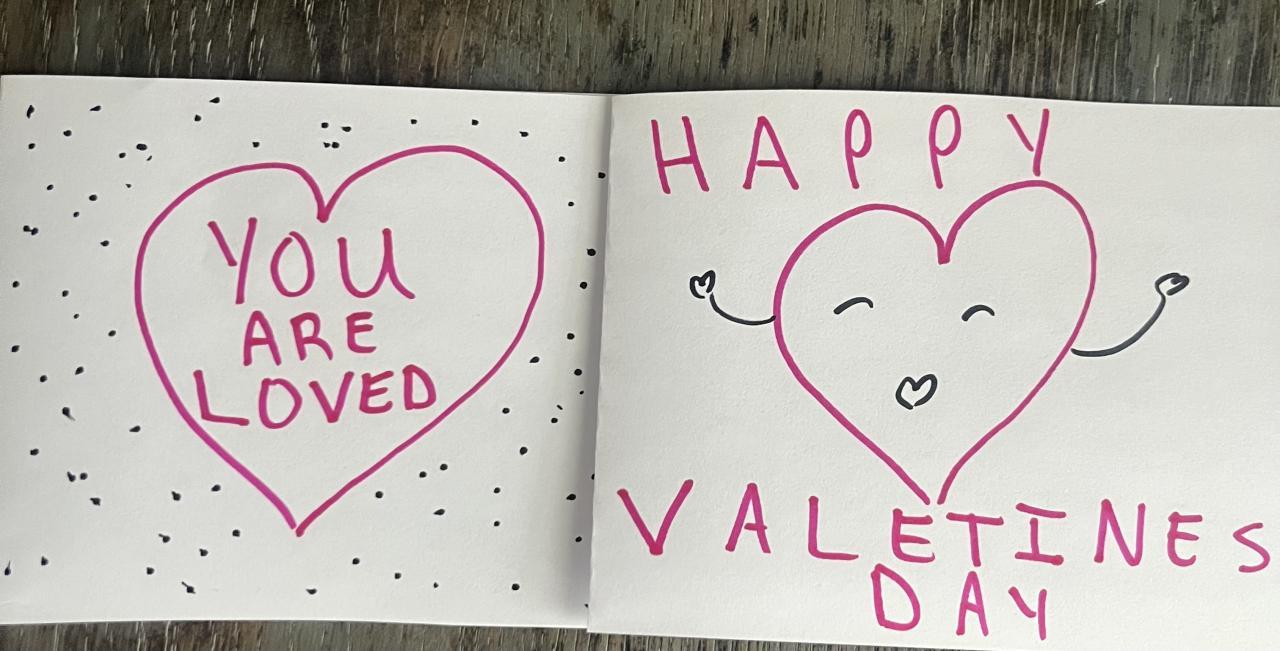 YOU
ARE
LOVED
HAPPY
VALETINES
DAY